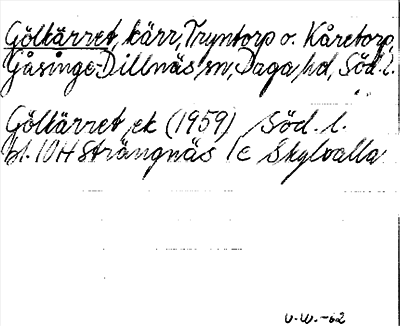 Gölkärret, kärr, Tryntorp o. Kåretorp,
Gåsinge-Dillnäs sn, Daga hd, Söd. l.
Gölkärret ek (1959) Söd. l.
bl. 10H Strängnäs 1c Skylvalla
V.W.-62